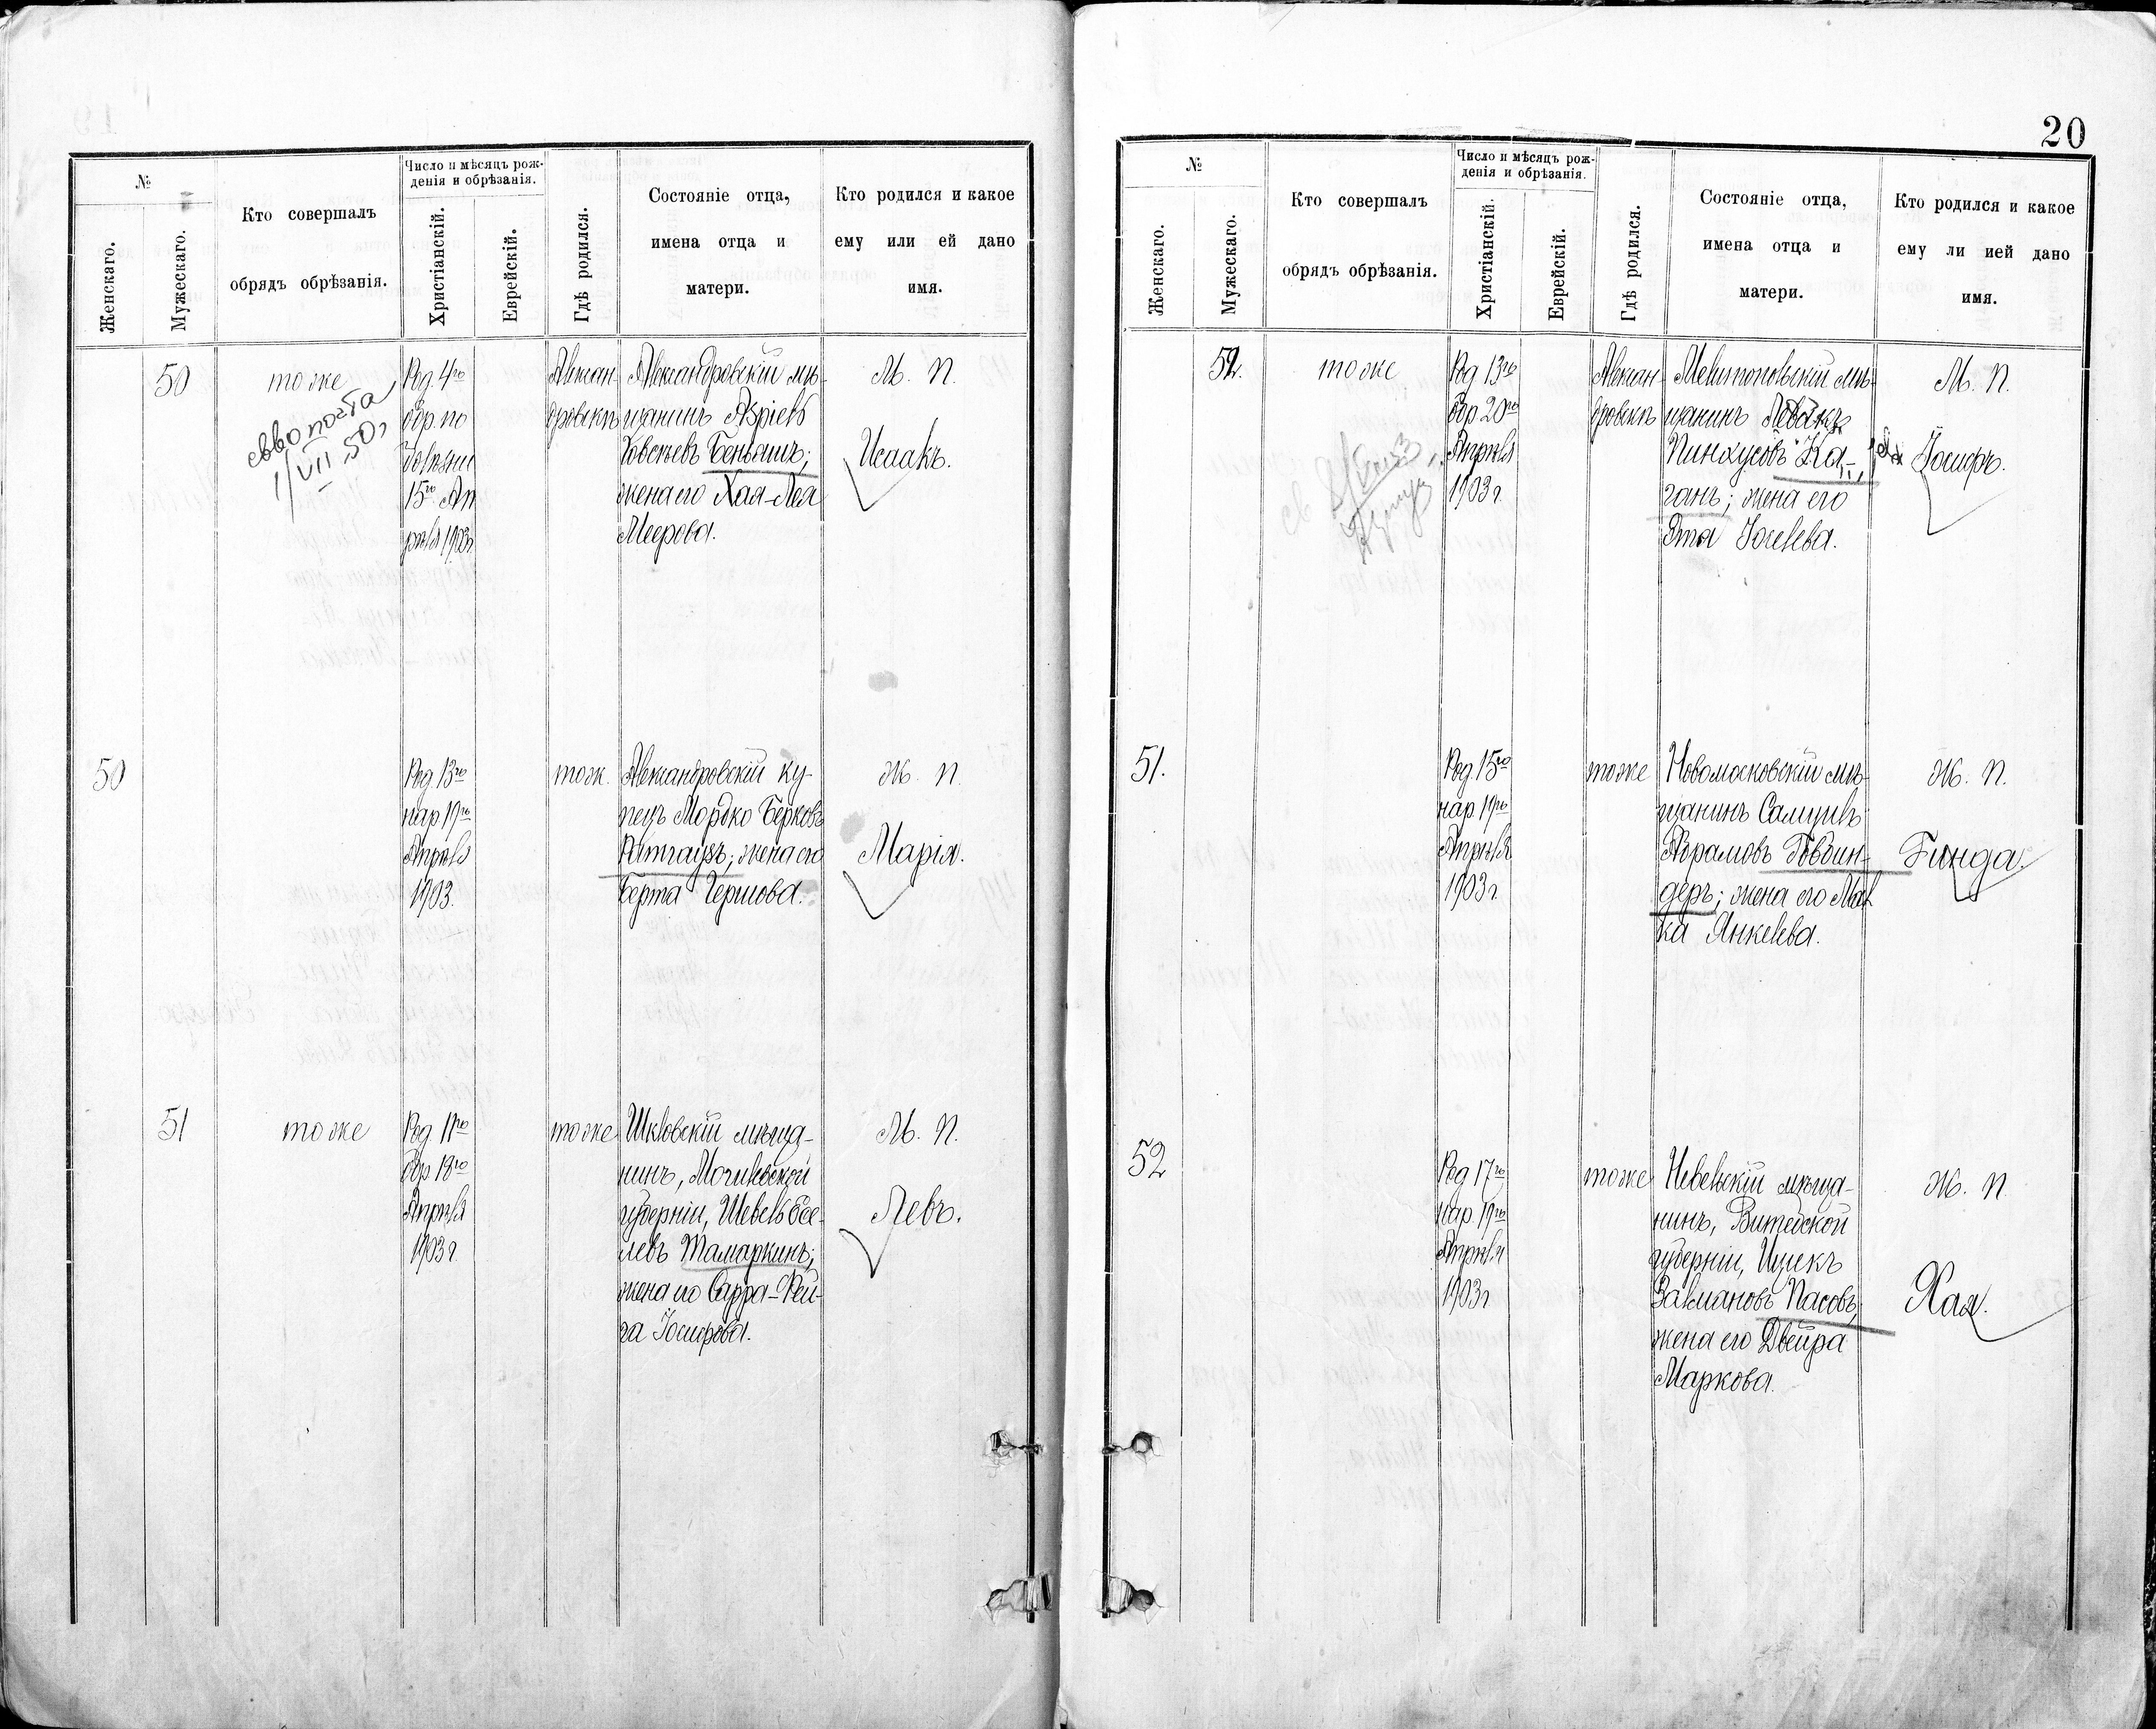 №
Женскаго.
Мужескаго.
Кто совершалъ
обрядъ обрѣзанія.
Число и мѣсяцъ рож-
денія и обрѣзанія.
Христіанскій.
Еврейскій.
Гдѣ родился.
Состояніе отца,
имена отца и
матери.
Кто родился и какое
ему или ей дано
имя.
50
тоже
1/VII 50г
Род. 4го
обр. по
болѣзни
15го Ап
рѣля 1903г
Алексан-
дровскѣ
Александровскій мѣ-
щанинъ Азріель
Беньминъ;
жена его Хая-Лея
Меерова.
М. П.
Исаакъ.
50
Род. 13го
нар 19го
Апрѣля
1903.
тож.
Александровскій ку-
пецъ Мордко Берковъ
Ратгаузъ; жена его
Берта Гершова.
Ж. П.
Марія.
51
тоже
Род. 11го
обр 18го
Апрѣля
1903 г.
тоже
Шкловскій мѣща-
нинъ, Могилевской
губерніи, Шевель Есе-
левъ Тамаркинъ;
жена его Сарра-Рей-
за Іосифова.
М. П.
Левъ.
20
№
Женскаго.
Мужескаго.
Кто совершалъ
обрядъ обрѣзанія.
Число и мѣсяцъ рож-
денія и обрѣзанія.
Христіанскій.
Еврейскій.
Гдѣ родился.
Состояніе отца,
имена отца и
матери.
Кто родился и какое
ему ли ией дано
имя.
52.
тоже
Род 13го
обр 20го
Апрѣля
1903 г.
Алексан
дровскѣ
Мелитопольскій мѣ-
щанинъ
Пинхусовъ Ка-
ганъ; жена его
Эта
М. П.
Іосифъ.
51.
Род. 15го
нар 19го
Апрѣля
1903 г.
тоже
Новомосковскій мѣ-
щанинъ Самуилъ
Абрамовъ Говбин-
деръ; жена его Мал
ка Янкелева.
Ж. П.
Гинда.
52
Род 17го
нар. 19го
Апрѣля
1903 г
тоже
Невельскій мѣща-
нинъ, Витебской
губерніи, Ицекъ
Залмановъ Пасовъ;
жена его Двейра
Маркова.
Ж. П.
Хая.